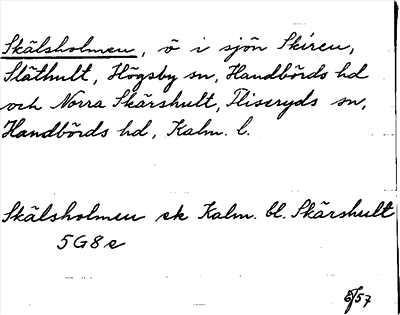 Skälsholmen, ö i sjön Skiren,
Släthult, Högsby sn, Handbörds hd
och Norra Skärshult, Fliseryds sn,
Handbörds hd, Kalm. l.
Skälsholmen ek Kalm. bl. Skärshult
5G8e
6/57